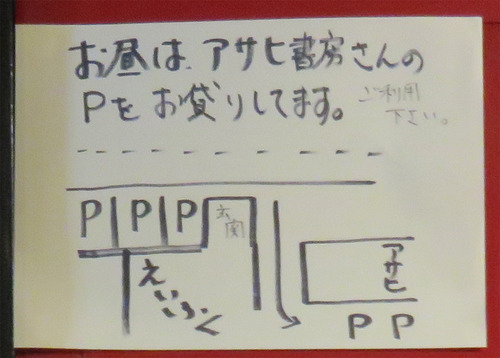 お昼は、アサヒ書房さんの
Pをお貸りしてます。ご利用
下さい。
P P P 玄関
えいらく
アサヒ
P P